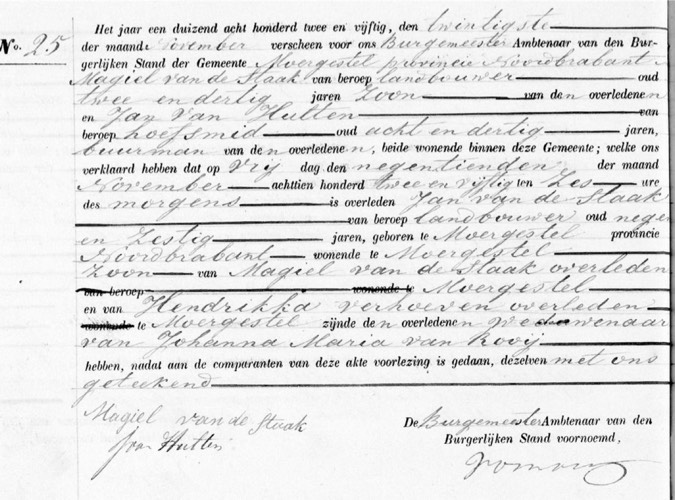 Het jaar een duizend acht honderd twee en vijftig, den twintigste
No. 25 der maand November verscheen voor ons Burgemeester Ambtenaar van den Bur-
gerlijken Stand der Gemeente Moergestel provincie Noordbrabant
Magiel van de Staak van beroep landbouwer oud
twee en dertig jaren Zoon van den overledenen
en Jan Van Hutten van
beroep hoefsmid oud acht en dertig jaren,
buurman van de n overledene n, beide wonende binnen deze Gemeente; welke ons
verklaard hebben dat op Vrij dag den negentienden der maand
November achttien honderd twee en vijftig ten Zes ure
des morgens is overleden Jan van de Staak
van beroep landbouwer oud negen
en Zestig jaren, geboren te Moergestel provincie
Noordbrabant wonende te Moergestel
Zoon van Magiel van de Staak overleden
van beroep wonende te Moergestel
en van Hendrikka verhoeven overleden
te Moergestel zijnde de n overledene n Weduwenaar
van Johanna Maria van Rooij
hebben, nadat aan de comparanten van deze akte voorlezing is gedaan, dezelven met ons
geteekend
Magiel van de Staak
Hutten
De Burgemeester Ambtenaar van den
Burgerlijken Stand voornoemd,